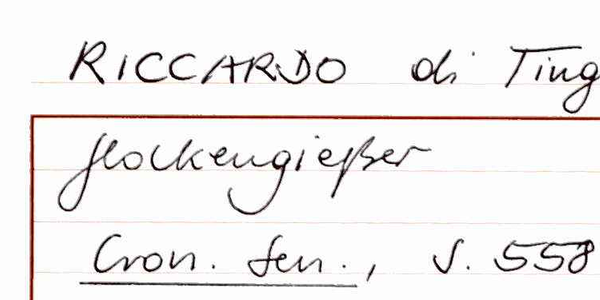 RICCARDO di Ting
Glockengießer
Cron. Sen., S. 558